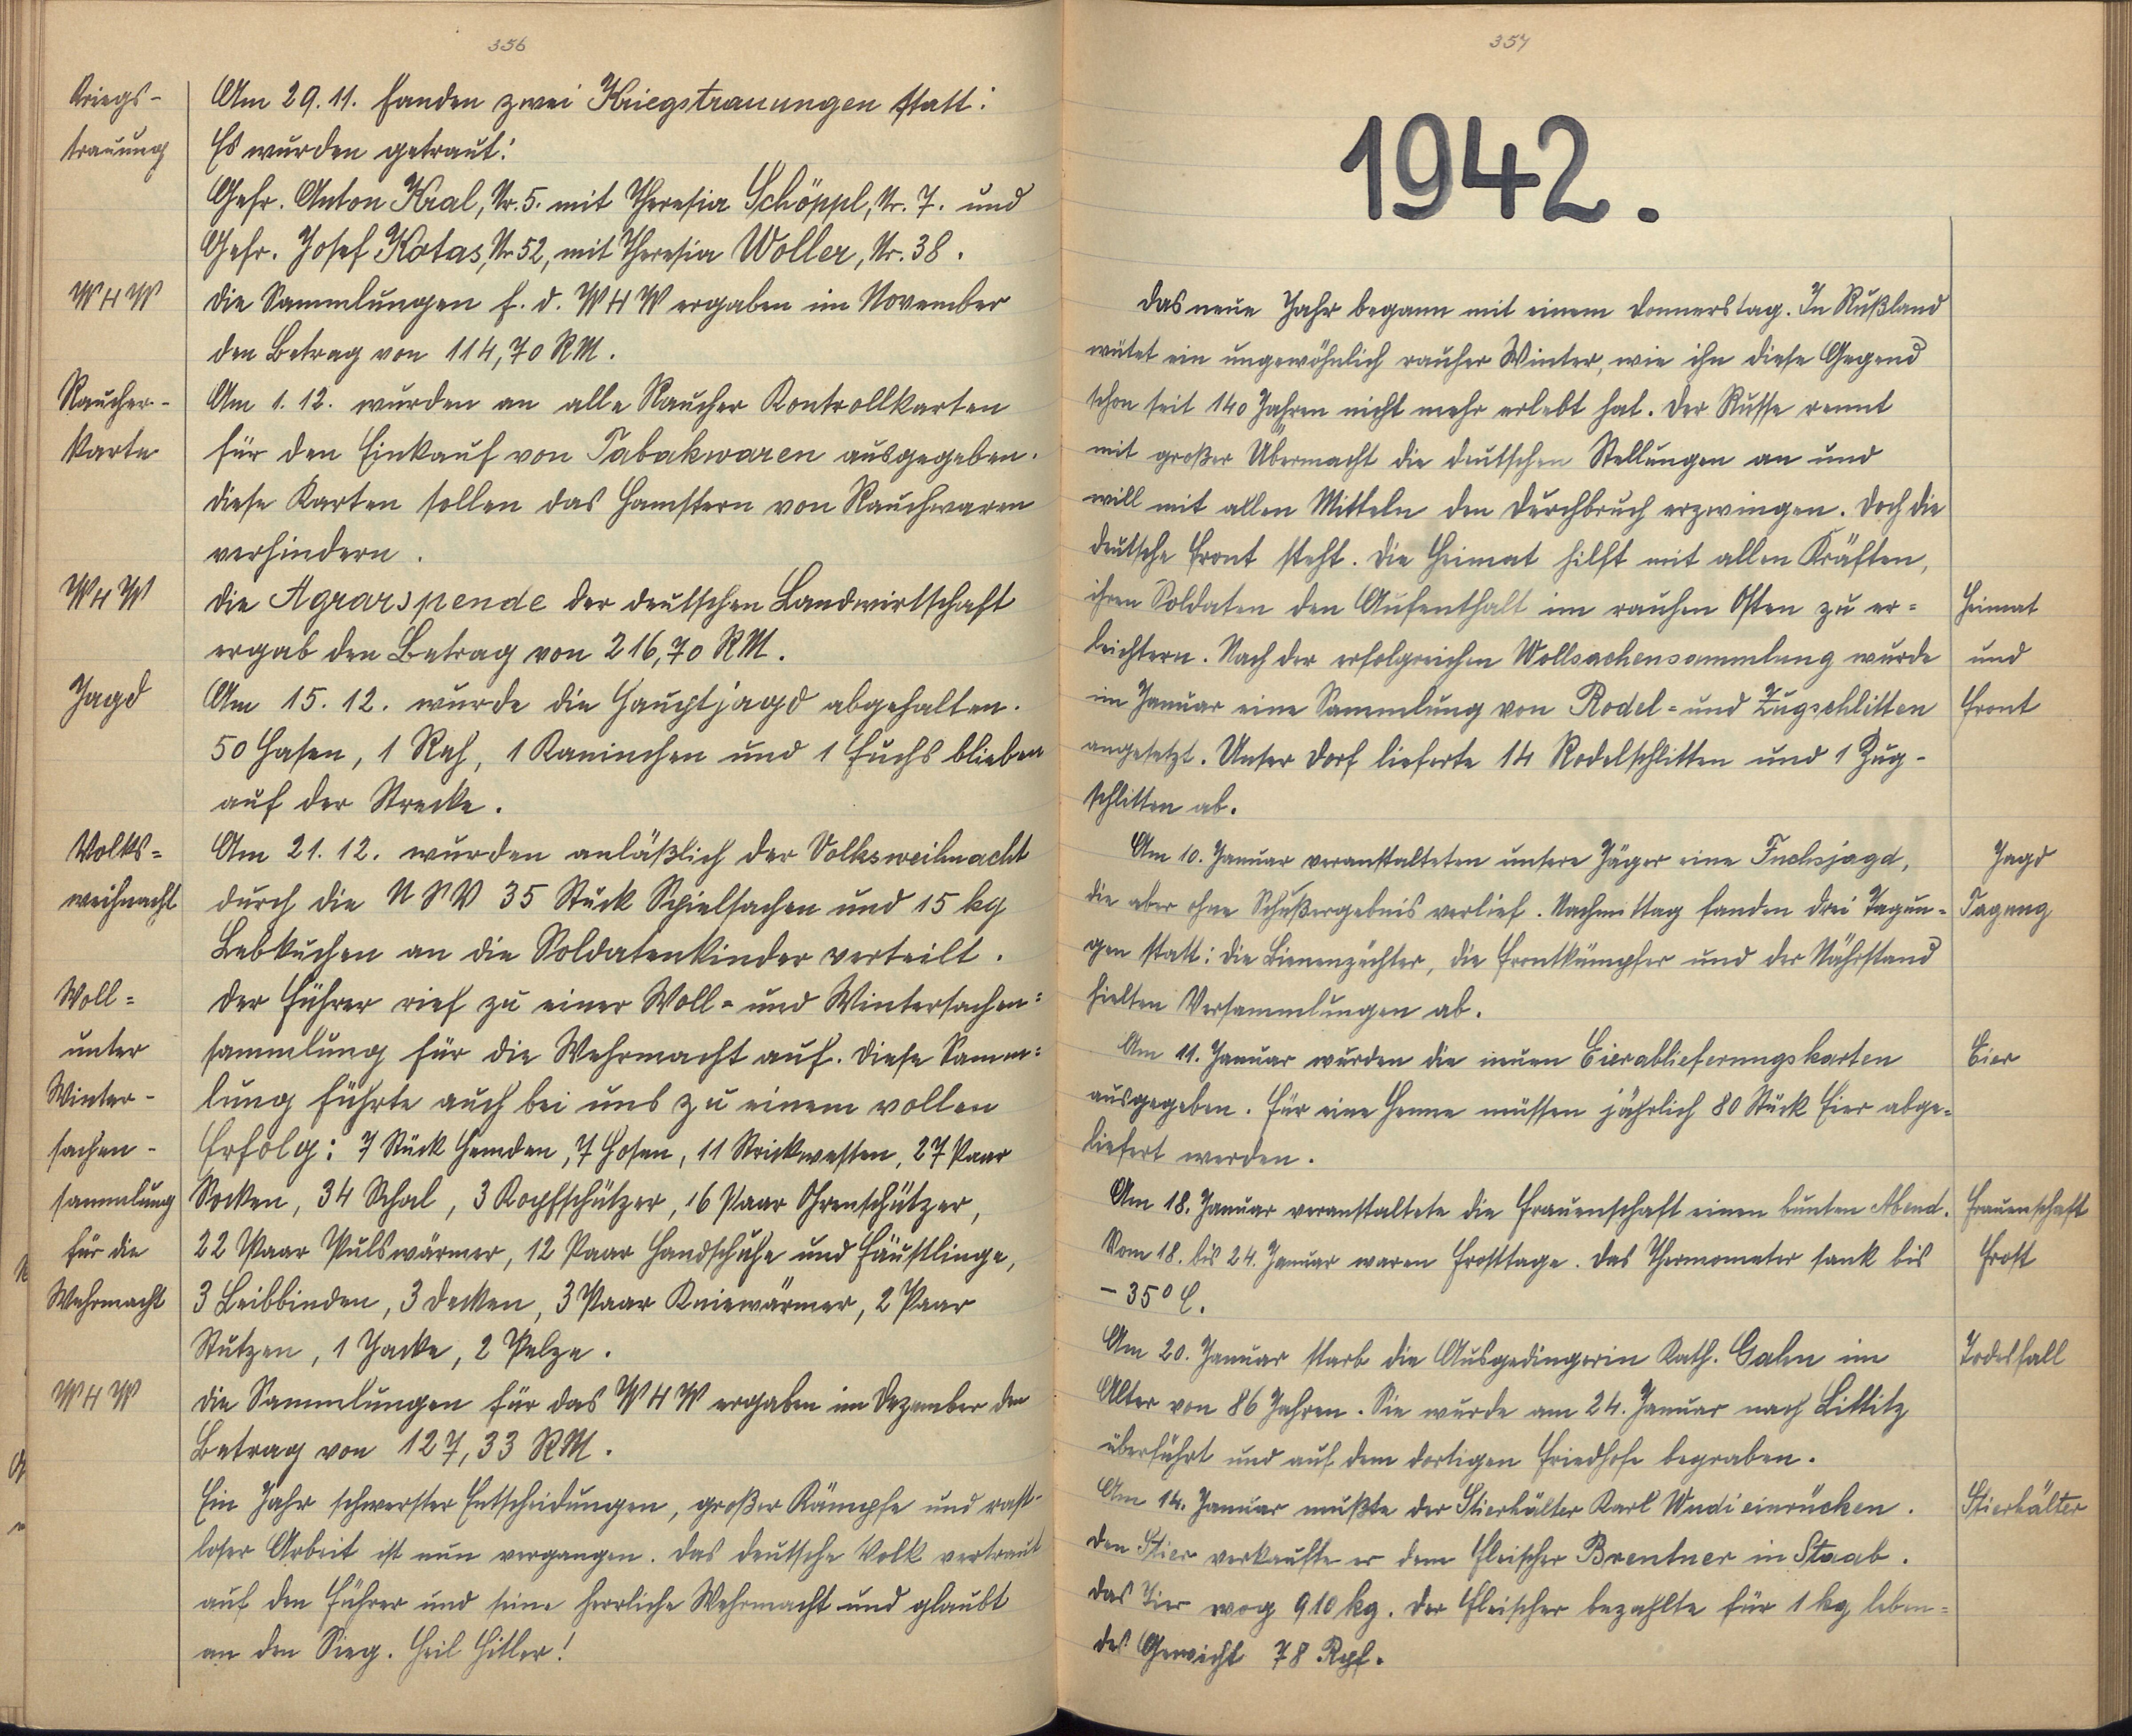 356
Kriegs-
trauung
Am 29.11. fanden zwei Kriegstrauungen statt:
Es wurden getraut:
Gefr. Anton Kral, Nr. 5. mit Theresia Schöppl, Nr. 7. und
Gefr. Josef Kotas, Nr 52, mit Theresia Woller, Nr. 38.
WHW
Die Sammlungen f. d. WHW ergaben im November
den Betrag von 114,70 RM.
Raucher-
karte
Am 1.12. wurden an alle Raucher Kontrollkarten
für den Einkauf von Tabakwaren ausgegeben.
Diese Karten sollen das Hamstern von Rauchwaren
verhindern.
WHW
Die Agrarspende der deutschen Landwirtschaft
ergab den Betrag von 216,70 RM.
Jagd
Am 15.12. wurde die Hauptjagd abgehalten.
50 Hasen, 1 Reh, 1 Kaninchen und 1 Fuchs blieben
auf der Strecke.
Volks=
weihnacht
Am 21.12. wurden anläßlich der Volksweihnacht
durch die NSV 35 Stück Spielsachen und 15 kg
Lebkuchen an die Soldatenkinder verteilt.
Woll=
unter
Winter-
sachen-
sammlung
für die
Wehrmacht
Der Führer rief zu einer Woll= und Wintersachen=
sammlung für die Wehrmacht auf. Diese Samm=
lung führte auch bei uns zu einem vollen
Erfolg: 7 Stück Hemden, 7 Hosen, 11 Strickwesten, 27 Paar
Socken, 34 Schal, 3 Kopfschützer, 16 Paar Ohrenschützer,
22 Paar Pulswärmer, 12 Paar Handschuhe und Fäustlinge,
3 Leibbinden, 3 Decken, 3 Paar Kniewärmer, 2 Paar
Stutzen, 1 Jacke, 2 Pelze.
WHW
Die Sammlungen für das WHW ergaben im Dezember den
Betrag von 127,33 RM.
Ein Jahr schwerster Entscheidungen, großer Kämpfe und rast-
loser Arbeit ist nun vergangen. Das deutsche Volk vertraut
auf den Führer und seine herrliche Wehrmacht und glaubt
an den Sieg. Heil Hitler!
357
1942.
Das neue Jahr begann mit einem Donnerstag. In Rußland
wütet ein ungewöhnlich rauher Winter, wie ihn diese Gegend
schon seit 140 Jahren nicht mehr erlebt hat. Der Russe rennt
mit großer Übermacht die deutschen Stellungen an und
will mit allen Mitteln den Durchbruch erzwingen. Doch die
deutsche Front steht. Die Heimat hilft mit allen Kräften,
ihren Soldaten den Aufenthalt im rauhen Osten zu er=
leichtern. Nach der erfolgreichen Wollsachensammlung wurde
im Januar eine Sammlung von Rodel= und Zugschlitten
angesetzt. Unser Dorf lieferte 14 Rodelschlitten und 1 Zug-
schlitten ab.
Heimat
und
Front
Am 10. Januar veranstalteten unsere Jäger eine Fuchsjagd,
die aber ohne Schußergebnis verlief. Nachmittag fanden drei Tagun=
gen statt: Die Bienenzüchter, die Frontkämpfer und der Nährstand
hielten Versammlungen ab.
Jagd
Tagung
Am 11. Januar wurden die neuen Eierablieferungskarten
ausgegeben. Für eine Henne müssen jährlich 80 Stück Eier abge=
liefert werden.
Eier
Am 18. Januar veranstaltete die Frauenschaft einen bunten Abend.
Frauenschaft
Vom 18. bis 24. Januar waren Frosttage. Das Thermometer sank bis
- 35° C.
Frost
Am 20. Januar starb die Ausgedingerin Kath. Galen im
Alter von 86 Jahren. Sie wurde am 24. Januar nach Littitz
überführt und auf dem dortigen Friedhofe begraben.
Todesfall
Am 14. Januar mußte der Stierhälter Karl Wudi einrücken.
Den Stier verkaufte er dem Fleischer Brentner in Staab.
Das Tier wog 910 kg. Der Fleischer bezahlte für 1 kg leben=
des Gewicht 78 Rpf.
Stierhälter